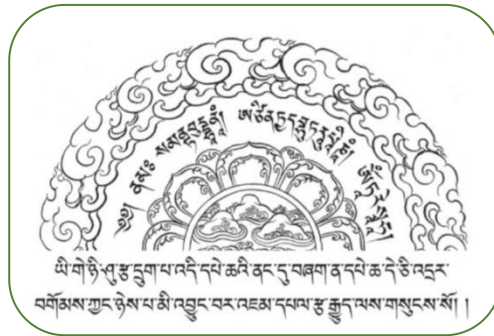 ༄༅། ནམཿ སམནྟབུདྡྷཱནཱཾ། ཨཙིནྟྱདབྷུཏརཱུཔིཎཱཾ།
ཡི་གེ་ཉི་ཤུ་རྩ་དྲུག་པ་འདི་དཔེ་ཆའི་ནང་དུ་བཞག་ན་དཔེ་ཆ་དེ་ཅི་འདྲར་
བགོམས་ཀྱང་ཉེས་པ་མི་འབྱུང་བར་འཇམ་དཔལ་རྩ་རྒྱུད་ལས་གསུངས་སོ། །